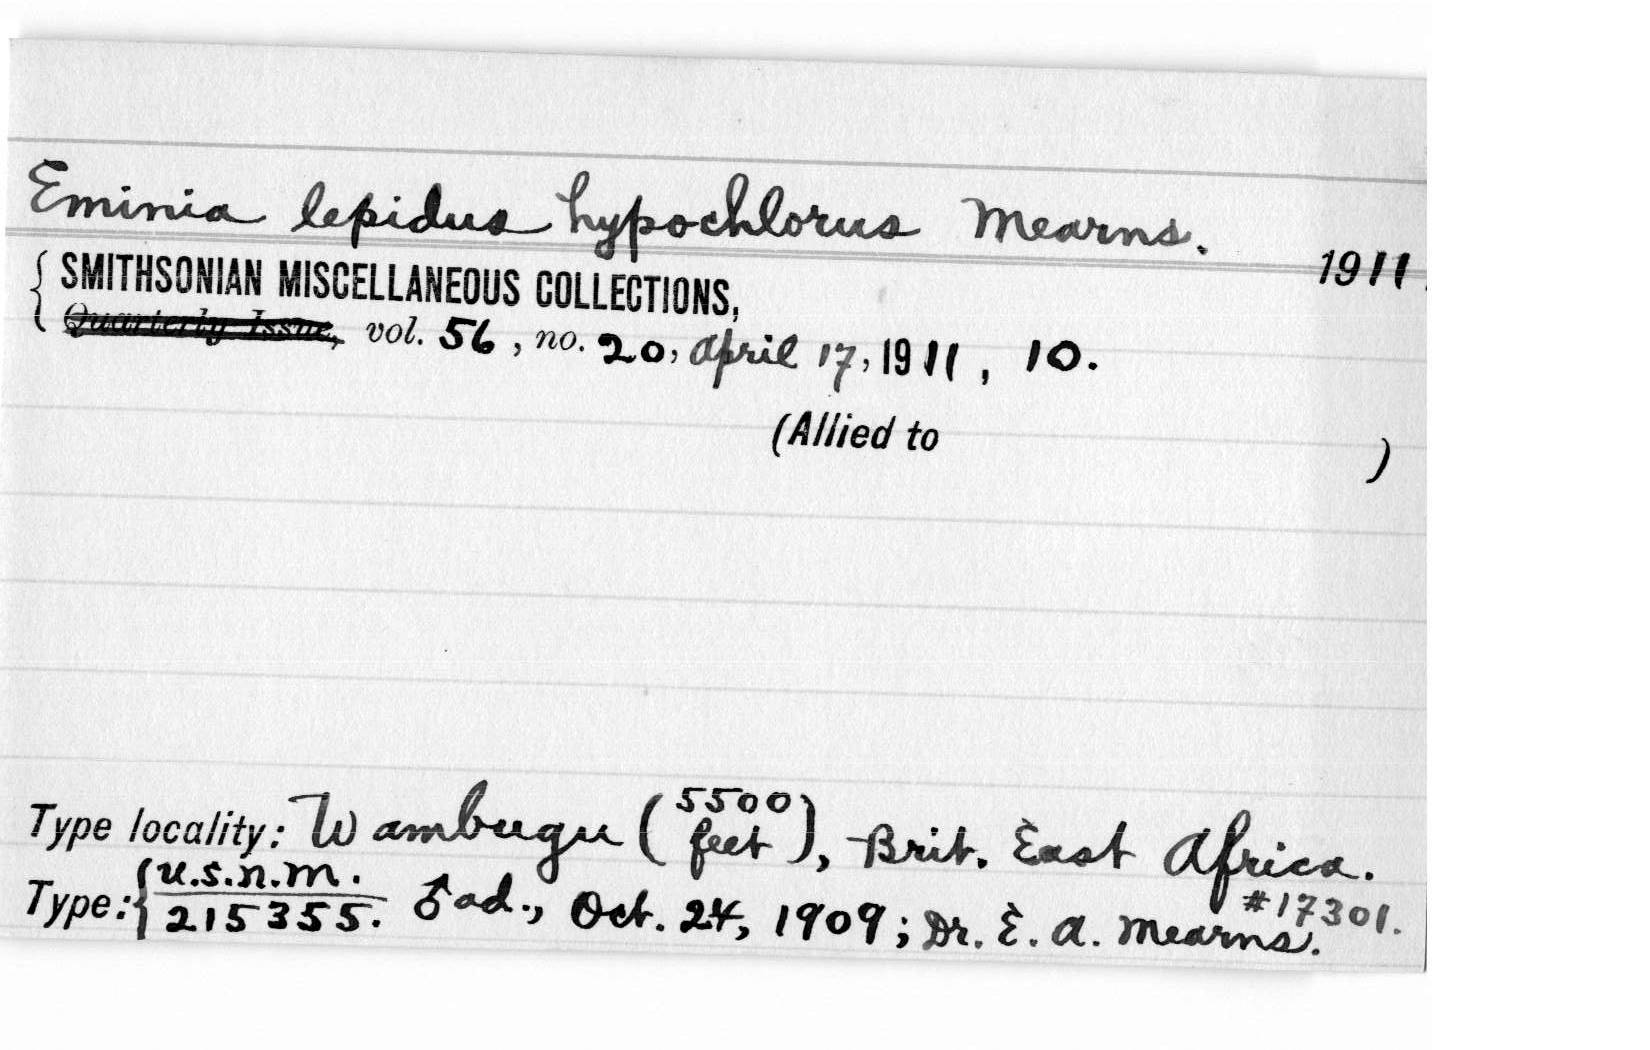 Eminia lepidus hypochlorus Mearns.
1911.
{ SMITHSONIAN MISCELLANEOUS COLLECTIONS,
Quarterly Issue, vol. 56, no. 20, April 17, 1911, 10.
(Allied to )
Type locality: Wambugu (5500 feet), Brit. East Africa.
Type: { U.S.N.M. 215355. ♂ ad., Oct. 24, 1909; Dr. E. A. Mearns. #17301.